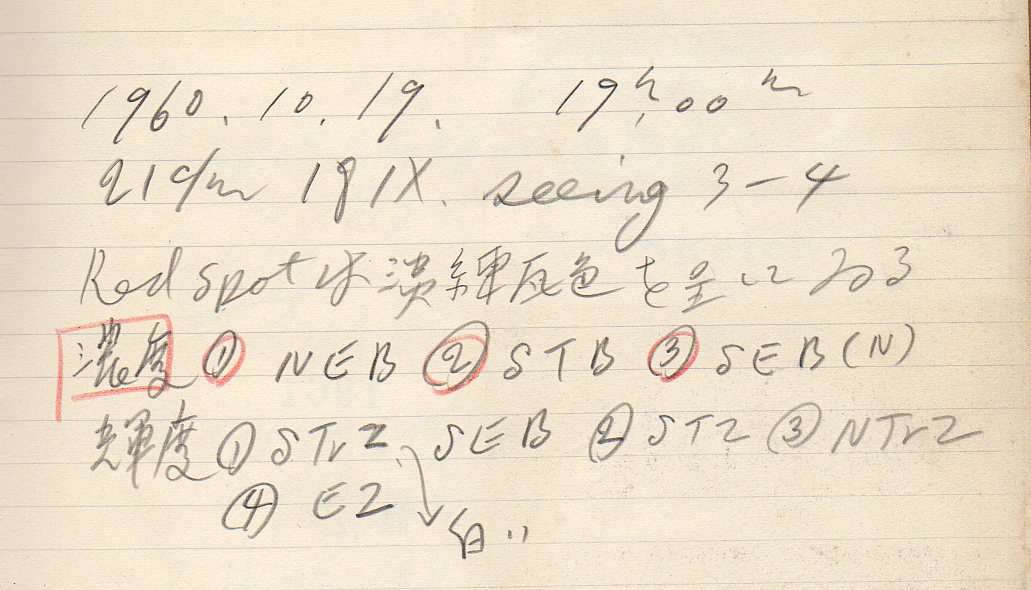 1960. 10. 19. 19h.00m
21cm 191X. seeing 3-4
Red spot は淡 灰色を呈している
濃度 ① NEB ② STB ③ SEB(N)
輝度 ① STrZ, SEB ② STZ ③ NTrZ
④ EZ 白い